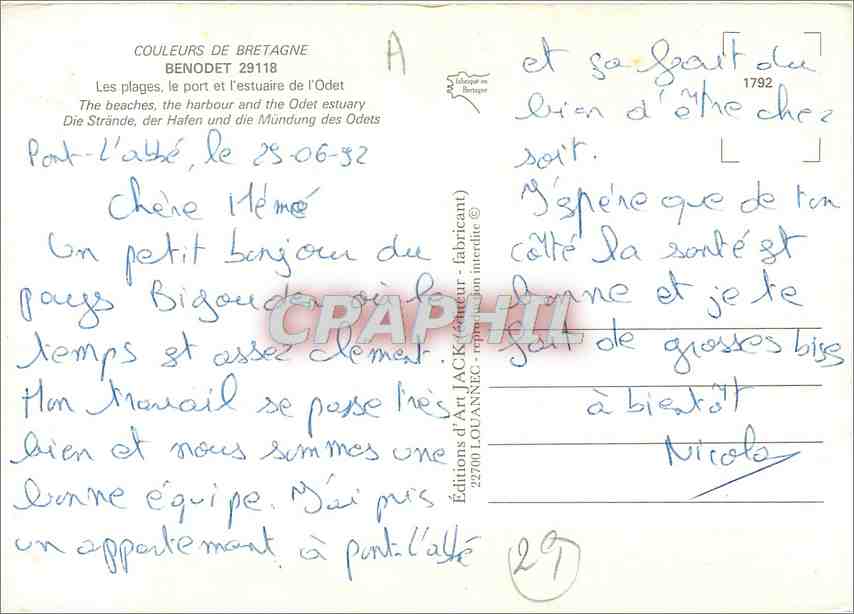 COULEURS DE BRETAGNE
BENODET 29118
Les plages, le port et l'estuaire de l'Odet
The beaches, the harbour and the Odet estuary
Die Strände, der Hafen und die Mündung des Odets
A
fabriqué en
Bretagne
1792
Pont-L'abbé, le 29-06-92
Chère Mémé
Un petit bonjour du
pays Bigouden où le
temps est assez clément.
Mon travail se passe très
bien et nous sommes une
bonne équipe. J'ai pris
un appartement à pont-l'abbé
Éditions d'Art JACK (éditeur - fabricant)
22700 LOUANNEC - reproduction interdite ©
et sa fait du
bien d'être chez
soit.
J'espére que de ton
côté la santé est
bonne et je te
fait de grosses bises
à bientôt
Nicolas
29
CPAPHIL